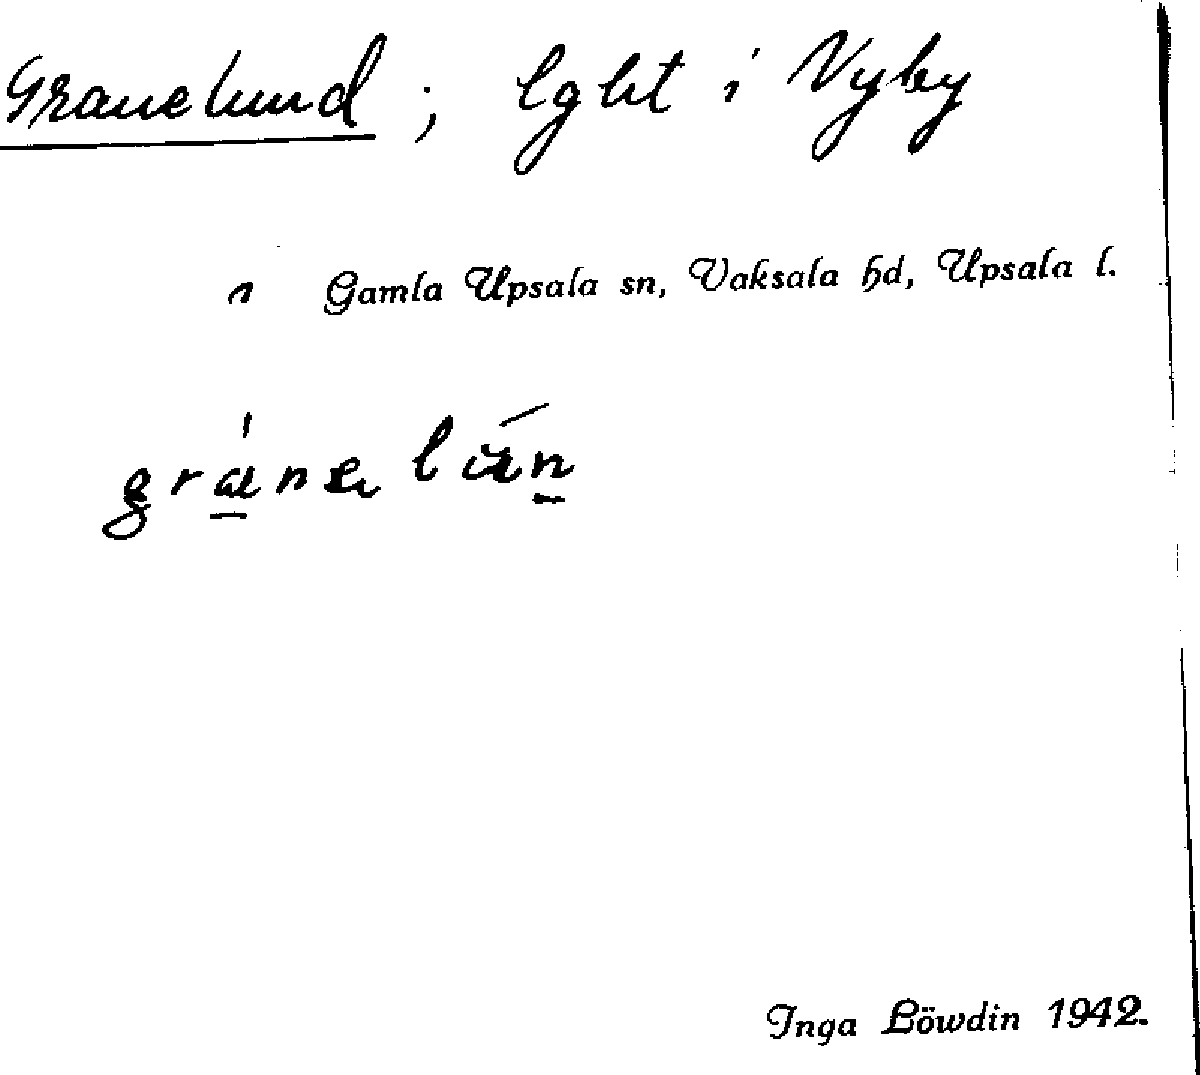 Granelund ; lght i Vyby
i Gamla Upsala sn, Vaksala hd, Upsala l.
Inga Löwdin 1942.